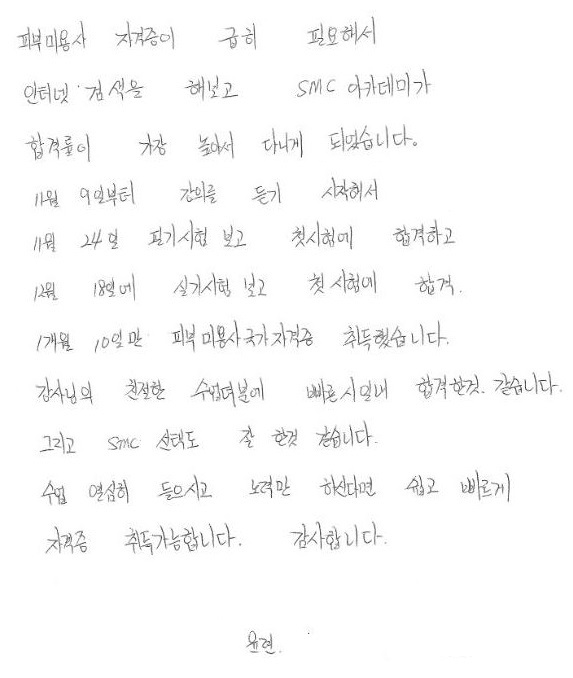 피부미용사 자격증이 급히 필요해서
인터넷 검색을 해보고 SMC 아카데미가
합격률이 가장 높아서 다니게 되었습니다.
11월 9일부터 강의를 듣기 시작해서
11월 24일 필기시험 보고 첫시험에 합격하고
12월 18일에 실기시험 보고 첫 시험에 합격.
1개월 10일만 피부미용사국가자격증 취득했습니다.
강사님의 친절한 수업덕분에 빠른시일내 합격한것 같습니다.
그리고 SMC 선택도 잘 한것 같습니다.
수업 열심히 들으시고 노력만 하신다면 쉽고 빠르게
자격증 취득가능합니다. 감사합니다.
윤현.